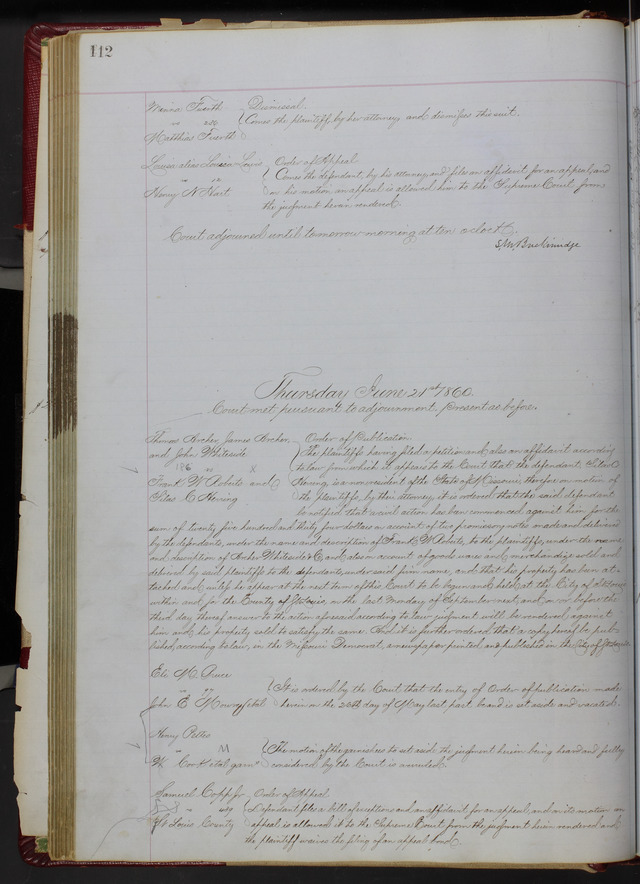 112
Dismissal.
Comes the plaintiff, by her attorney, and dismisses this suit.
Matthias Fuerth
Louisa alias Louisa Lewis Order of Appeal
vs Comes the defendant, by his attorney, and files an affidavit for an appeal, and
Henry N Hart on his motion, an appeal is allowed him to the Supreme Court from
the judgment herein rendered.
Court adjourned until tomorrow morning at ten o'clock.
S. M. Breckinridge
Thursday June 21st 1860.
Court met pursuant to adjournment, present as before.
Thomas Archer, James Archer Order of Publication
and John Whiteside The plaintiffs having filed a petition and also an affidavit according
186 vs X to law from which it appears to the Court that the defendant, Silas C
Frank W Roberts and Hering, is a nonresident of the State of Missouri, therefore on motion of
Silas C Hering the plaintiffs, by their attorney, it is ordered that the said defendant
be notified that a civil action has been commenced against him for the
sum of twenty five hundred and thirty four dollars on account of two promissory notes made and delivered
by the defendants, under the name and description of Frank W Roberts, to the plaintiffs, under the name
and description of Archer Whiteside & Co and also on account of goods wares and merchandize sold and
delivered by said plaintiffs to the defendants, under said firm name, and that his property has been at=
tached and unless he appear at the next term of this Court to be begun and held at the City of St Louis
within and for the County of St Louis, on the last Monday of September next, and on or before the
third day thereof answer to the action aforesaid according to law, judgment will be rendered against
him and his property sold to satisfy the same. And it is further ordered that a copy hereof be pub=
lished according to law, in the Missouri Democrat, a newspaper printed and published in the City of St Louis.
Eli M Bruce
vs It is ordered by the Court that the entry of Order of publication made
John E et al herein on the 26th day of May last past, be and is set aside and vacated.
Henry
vs M The motion of the garnishees to set aside the judgment herein being heard and fully
et al garns considered by the Court is overruled.
Samuel Copp Jr Order of Appeal
vs Defendant files a bill of exceptions and an affidavit for an appeal, and on its motion an
St Louis County appeal is allowed it to the Supreme Court from the judgment herein rendered and
the plaintiff waives the filing of an appeal bond.